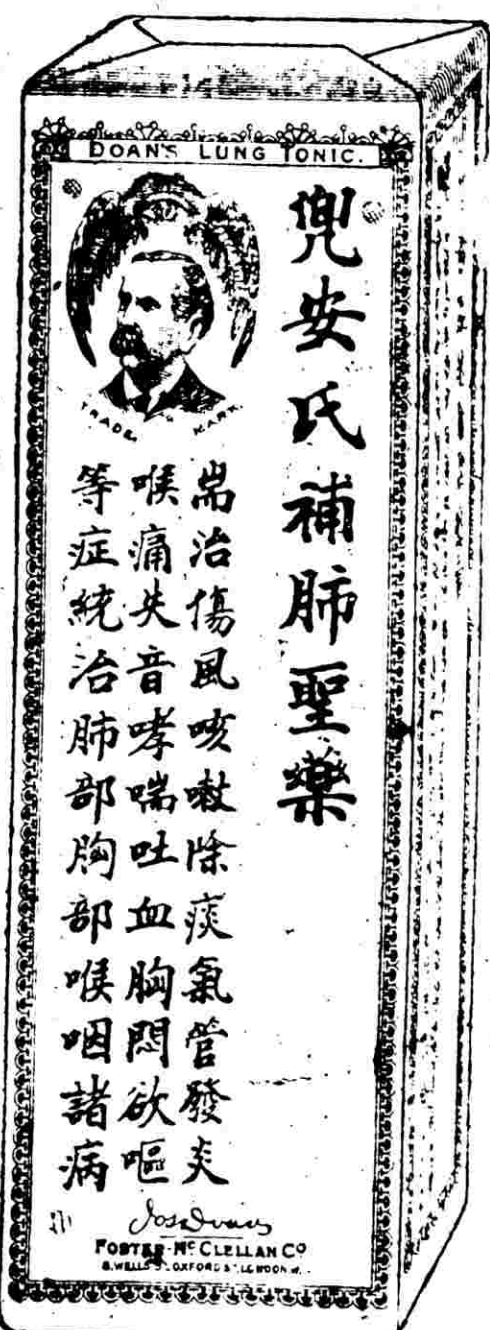 DOAN'S LUNG TONIC.
TRADE MARK.
兜安氏補肺聖藥
耑治傷風咳嗽除痰氣管發炎
喉痛失音哮喘吐血胸悶欲嘔
等症統治肺部胸部喉咽諸病
FOSTER-McCLELLAN Co
8, WELLS St OXFORD St LONDON W.